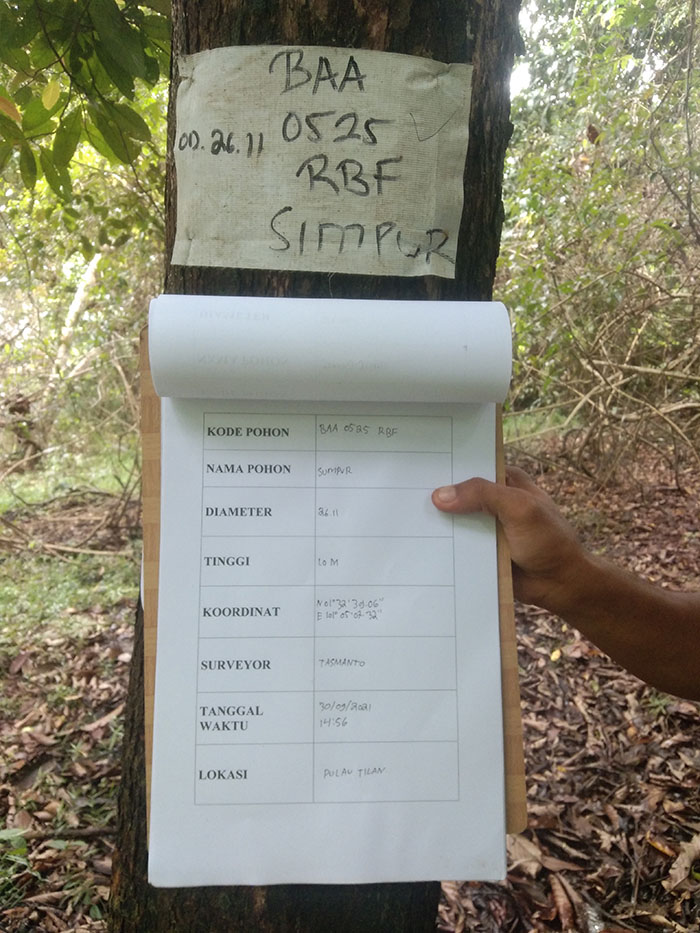 BAA
OD. 26.11 0525
RBF
SIMPUR
KODE POHON BAA 0525 RBF
NAMA POHON SIMPUR
DIAMETER 26.11
TINGGI 10 M
KOORDINAT N 01° 32' 30.06"
E 101° 05' 02.32"
SURVEYOR TASMANTO
TANGGAL 30/09/2021
WAKTU 14:56
LOKASI PULAU TILAN